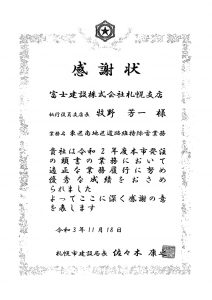 感謝状
富士建設株式会社札幌支店
執行役員支店長 牧野 芳一 様
業務名 東区南地区道路維持除雪業務
貴社は令和2年度本市発注
の頭書の業務において
適正な業務履行に努め
優秀な成績をおさめ
られました
よってここに深く感謝の意
を表します
令和3年11月18日
札幌市建設局長 佐々木 康